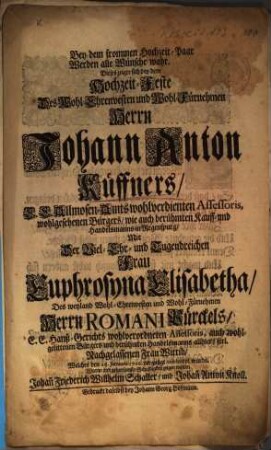 Bey dem frommen Hochzeit-Paar
Werden alle Wünsche wahr.
Dieses zeigte sich bey dem
Hochzeit-Feste
Des Wohl-Ehrenvesten und Wohl-Fürnehmen
Herrn
Johann Anton
Küffners/
E. E. Allmosen-Amts wohlverdienten Assessoris,
wohlgesehenen Burgers/ wie auch berühmten Kauff- und
Handelsmanns in Regenspurg/
Mit
Der Viel-Ehr- und Tugendreichen
Frau
Euphrosyna Elisabetha/
Des weyland Wohl-Ehrenvesten und Wohl-Fürnehmen
Herrn ROMANI Kürckels/
E. E. Hanß-Gerichts wohlverordneten Assessoris, auch wohl-
Burgers und berühmten Handelsmanns allhier seel.
Nachgelassenen Frau Wittib/
Welches den
Johann Friederich Wilhelm Schaller/ und Johann Anton Knoll.
Gedruckt daselbst bey Johann Georg